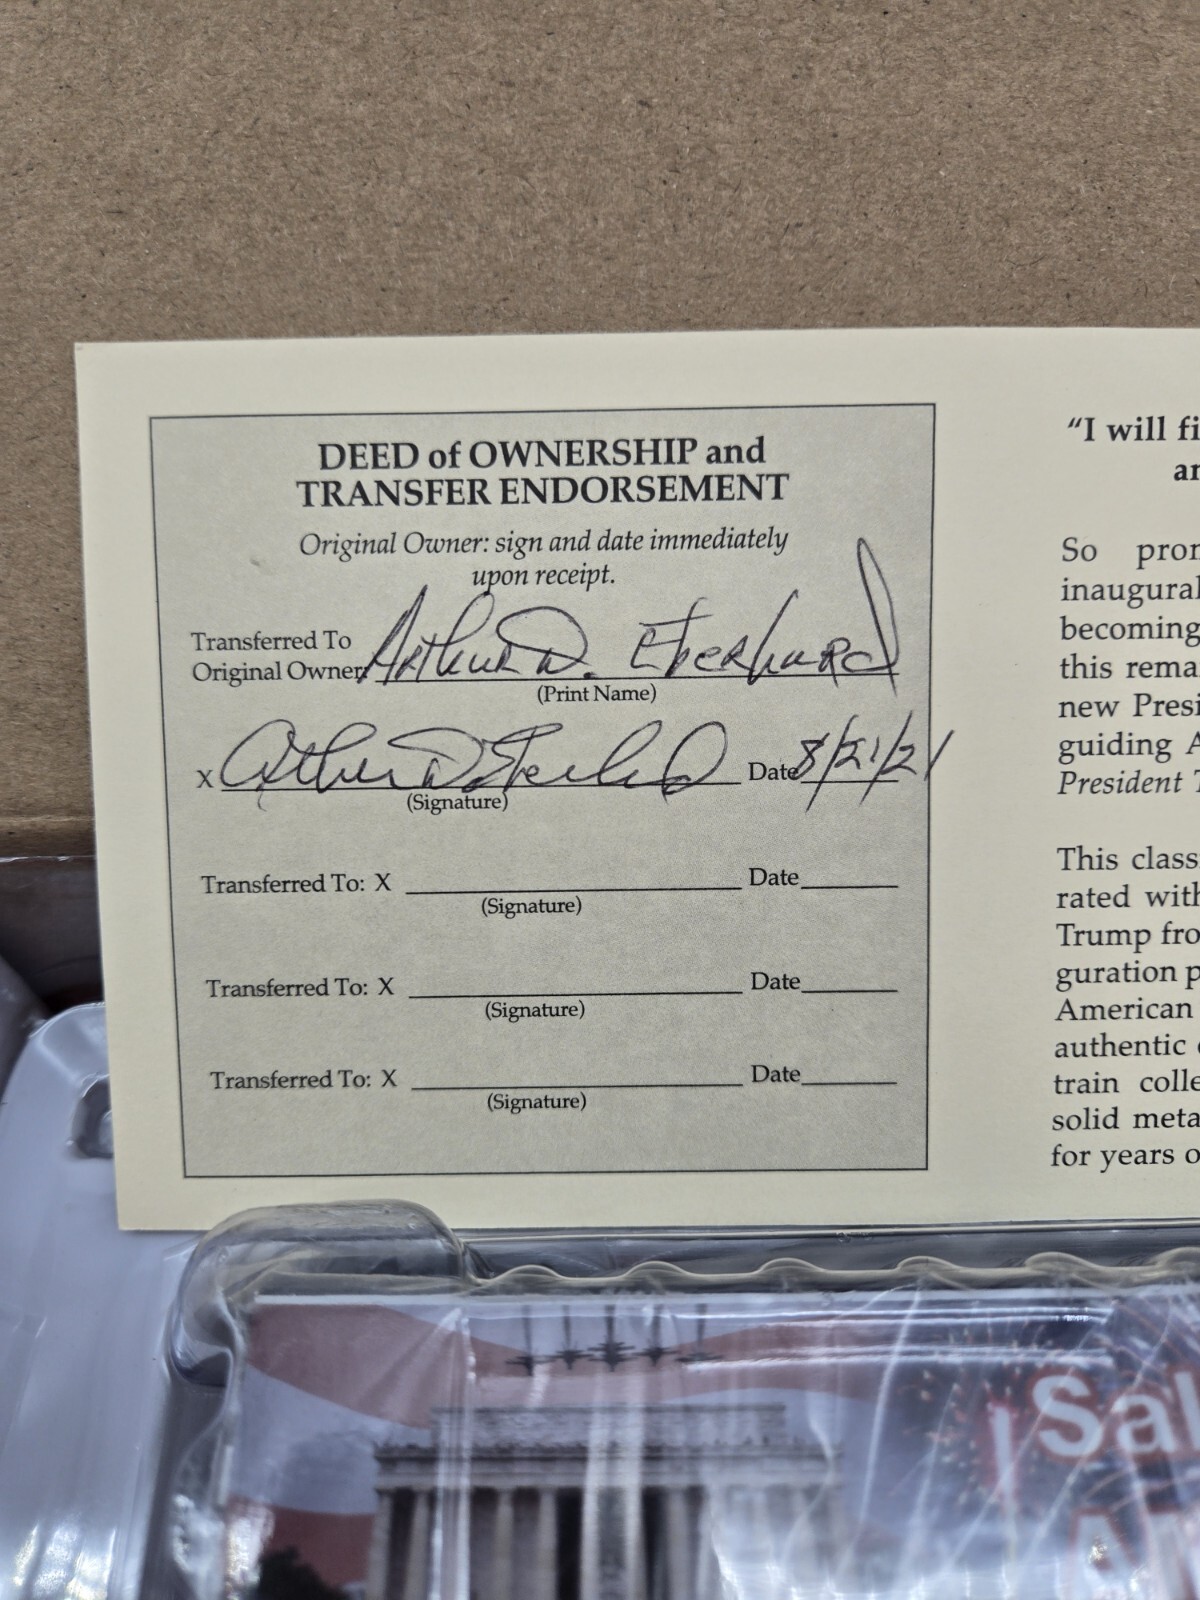 DEED of OWNERSHIP and
TRANSFER ENDORSEMENT
Original Owner: sign and date immediately
upon receipt.
Transferred To
Original Owner Arthur D. Eberhard
(Print Name)
X Arthur D Eberhard Date 8/21/21
(Signature)
Transferred To: X Date
(Signature)
Transferred To: X Date
(Signature)
Transferred To: X Date
(Signature)
"I will fi
an
So pron
inaugural
becoming
this rema
new Presi
guiding A
President T
This class
rated with
Trump fro
guration p
American
authentic
train colle
solid meta
for years o
Sal